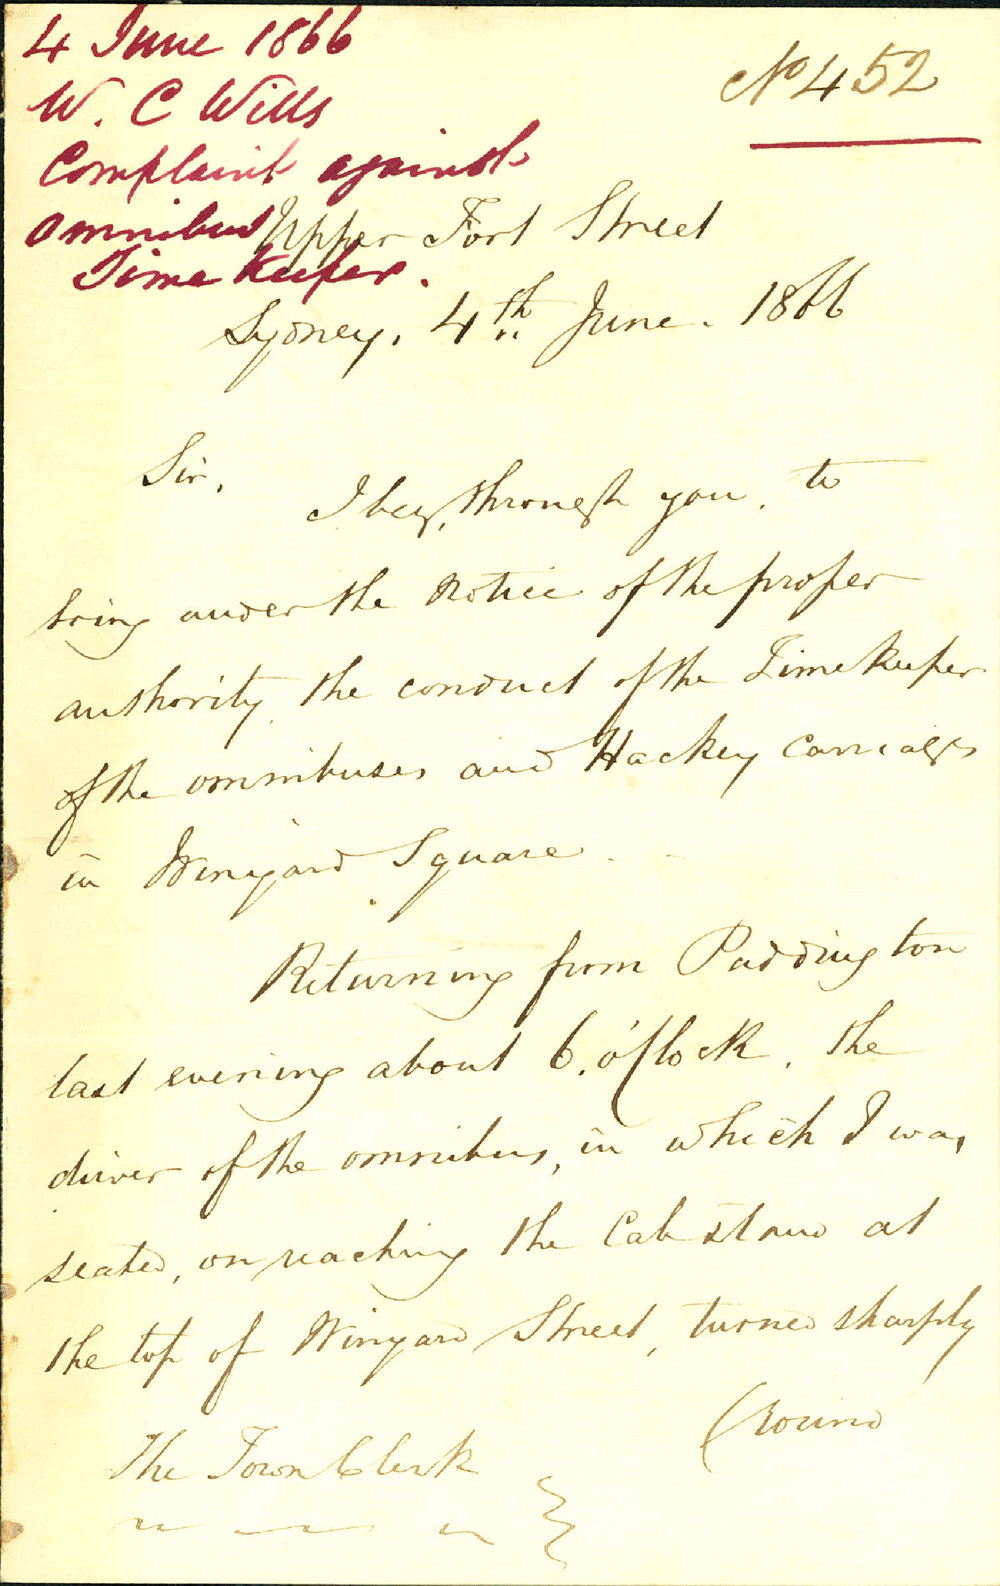 4 June 1866
W. C Wills
Complaint against
Omnibus
Time Keeper.
No 452
Upper Fort Street
Sydney, 4th June. 1866
Sir,
I beg, through you, to
bring under the notice of the proper
authority, the conduct of the Time Keeper
of the omnibuses and Hackey Carriages
in Winyard Square.
Returning from Paddington
last evening about 6. o'Clock, the
driver of the omnibus, in which I was
seated, on reaching the Cab stand at
the top of Winyard Street, turned sharply
(round
The Town Clerk